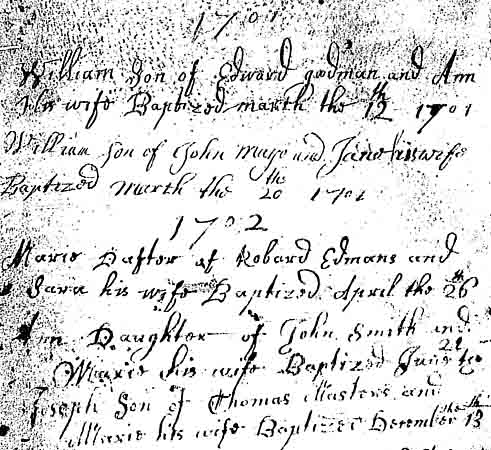 1701
William Son of Edward goodman and Ann
his wife Baptized marth the 12th 1701
William Son of John Mayo and Jane his wife
Baptized Marth the 20th 1701
1702
Marie Dafter of Robard Edmans and
Sara his wife Baptized April the 26th
Ann Daughter of John Smith and
Marie his wife Baptized June
Joseph Son of Thomas Masters and
Marie his wife Baptized December the 13th